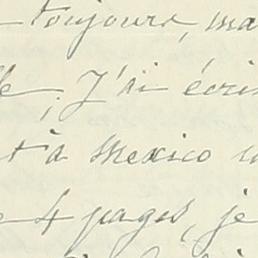 toujours, ma
; J'ai écri
à Mexico
4 pages, je